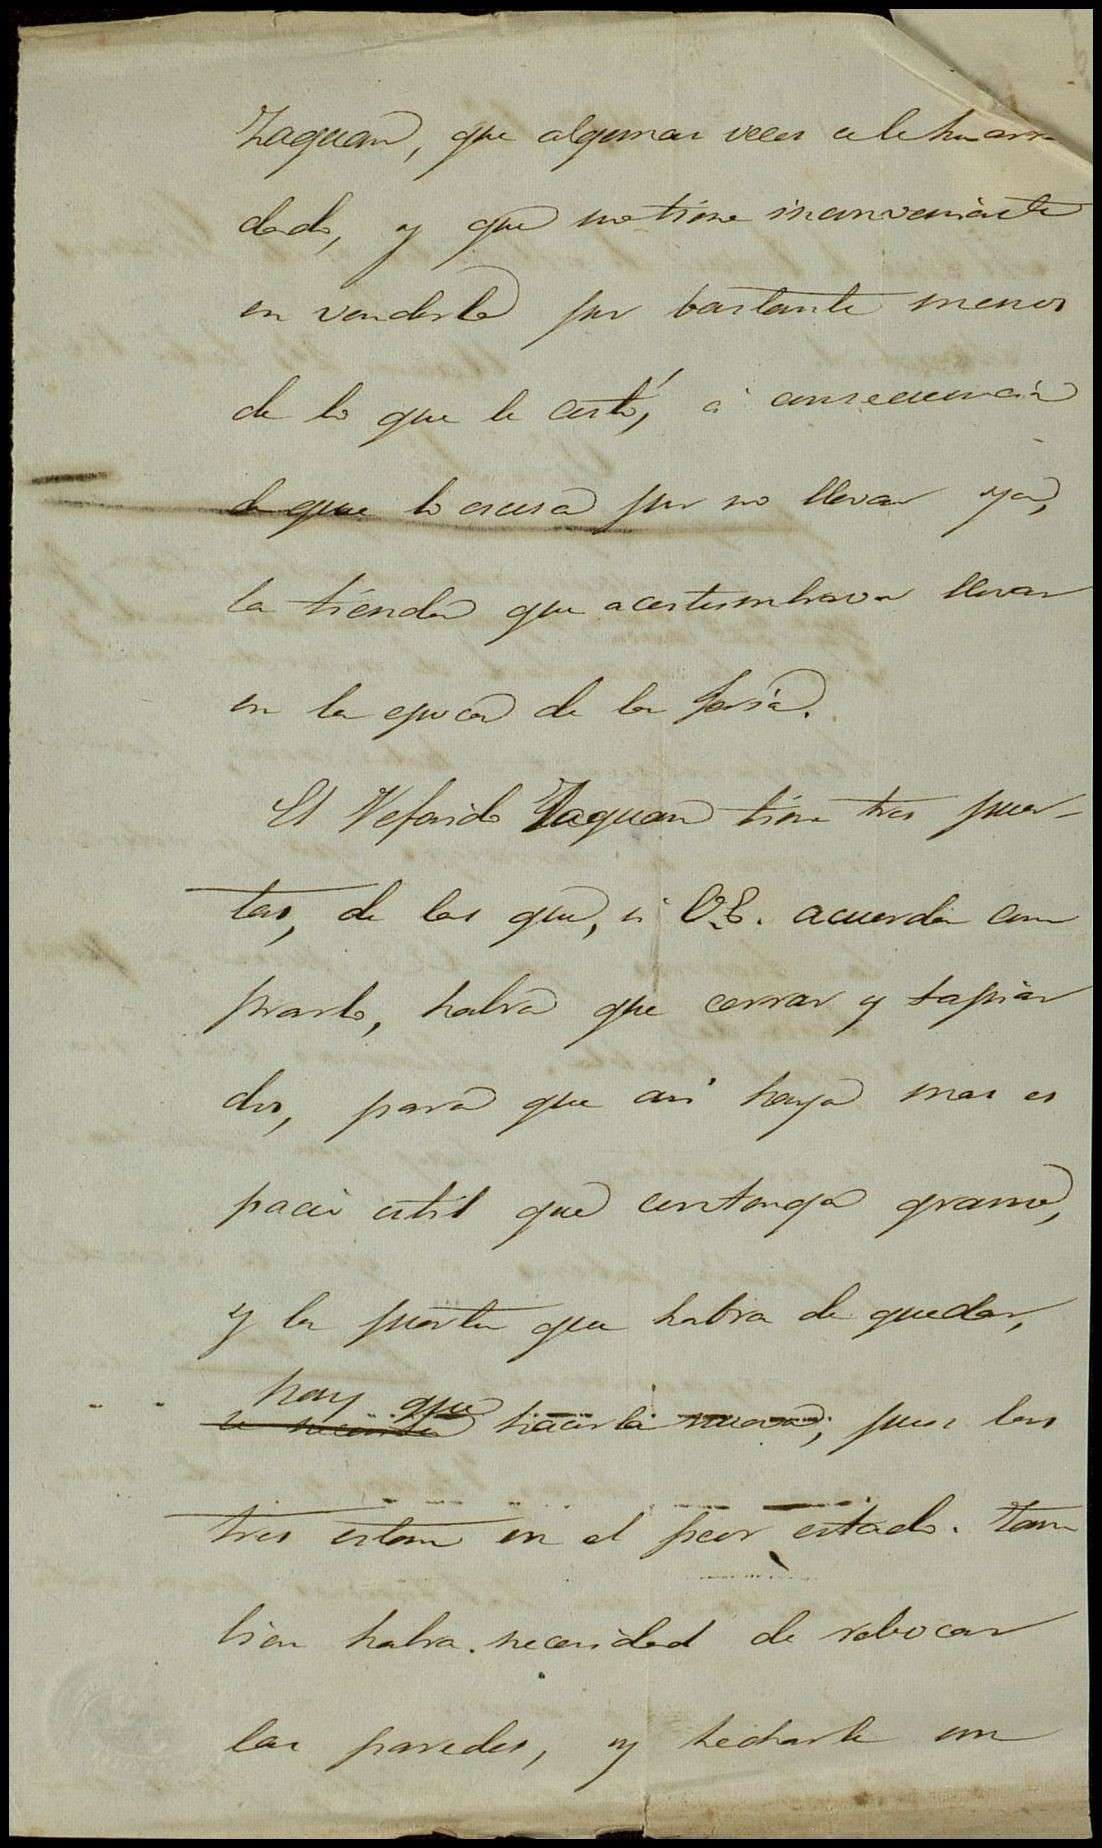 Zaguan, que algunas veces se le ha arren
dado, y que no tiene inconveniente
en venderlo por bastante menos
de lo que le costó, á consecuencia
de que lo escusa por no llevar ya,
la tienda que acostumbrava llevar
en la epoca de la feria.
El Referido Zaguan tiene tres puer-
tas, de las que, si V.E. acuerda com
prarlo, habrá que cerrar y tapiar
dos, para que asi haya mas es
pacio util que contenga grano,
y la puerta que habra de quedar,
hay que
se necesita hacerla nueva, pues las
tres estan en el peor estado. Tam
bien habra necesidad de rebocar
las paredes, y hecharle un